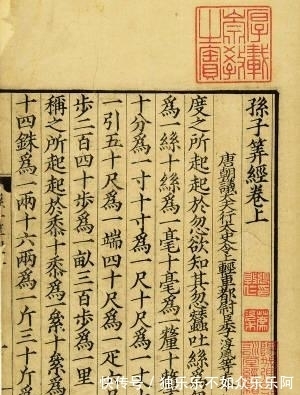 孫子筭經卷上
唐朝議大夫行太史令上輕車都尉臣李淳風等
度之所起起於忽欲知其忽蠶吐絲爲
爲一絲十絲爲一毫十毫爲一釐十釐
十分爲一寸十寸爲一尺十尺爲一
一引五十尺爲一端四十尺爲一疋
步二百四十步爲一畝三百步爲一里
稱之所起起於黍十黍爲一絫十絫爲
十四銖爲一兩十六兩爲一斤三十斤
快传号 / 独乐乐不如众乐乐阿